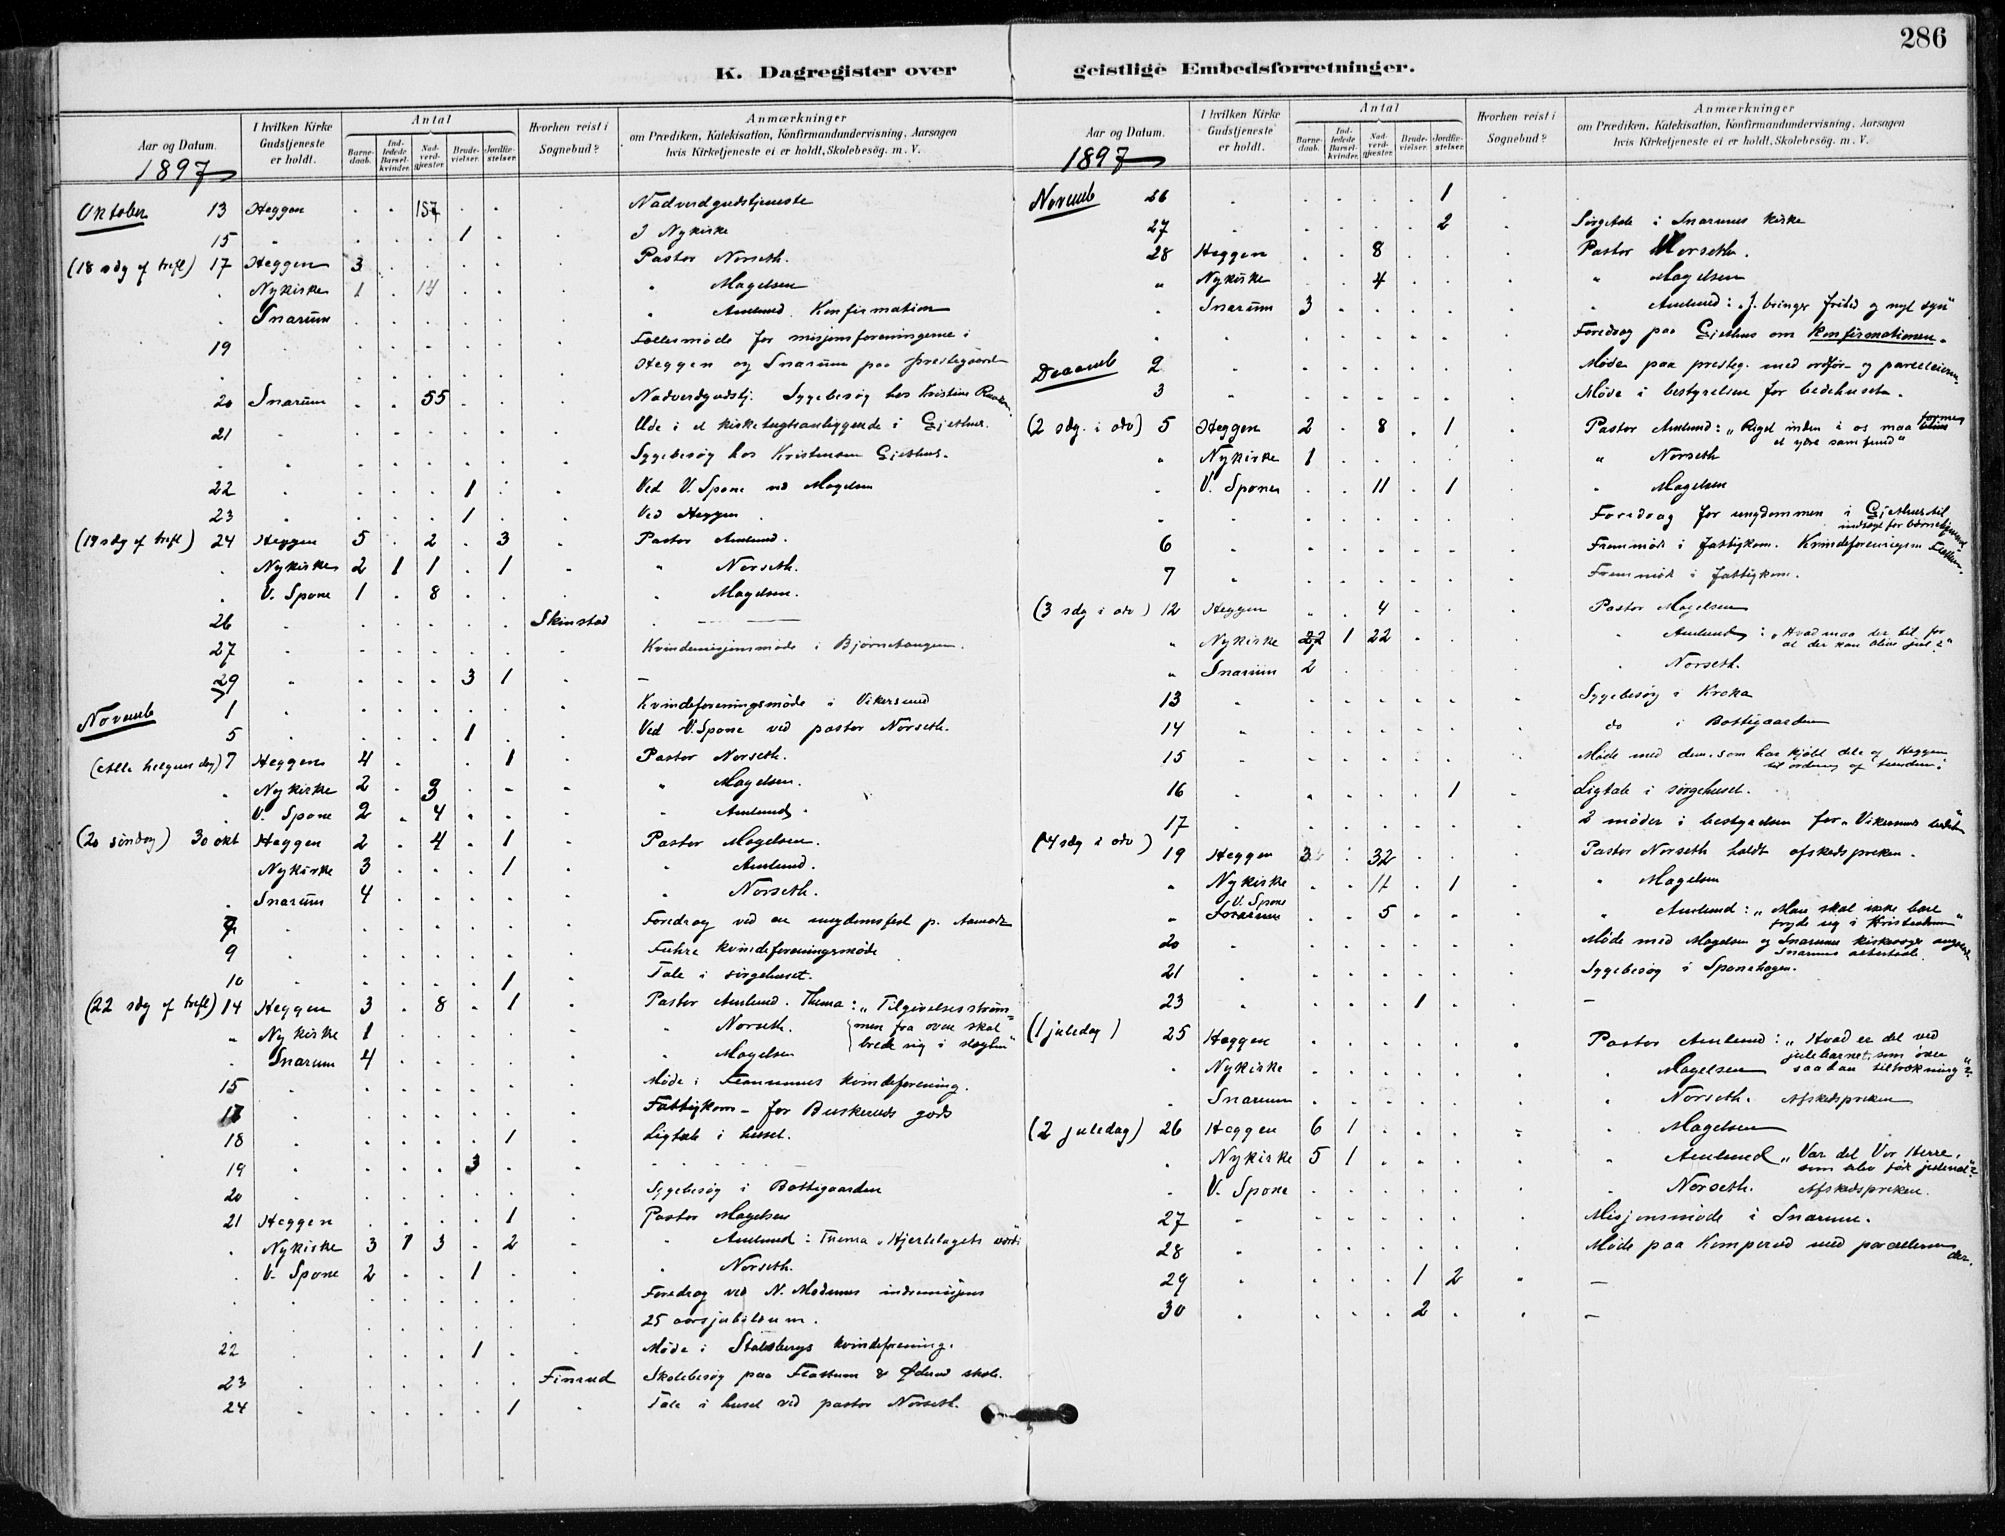 286
K. Dagregister over geistlige Embedsforretninger.
Aar og Datum.
I hvilken Kirke Gudstjeneste er holdt.
Antal
Barne-daab.
Ind-ledede Barsel-kvinder.
Nad-verd-gjester.
Brude-vielser.
Jordfæ-stelser.
Hvorhen reist i Sognebud?
Anmærkninger
om Prædiken, Katekisation, Konfirmandundervisning, Aarsagen
hvis Kirketjeneste ei er holdt, Skolebesøg. m. V.
1897
Oktober 13 Heggen . . 157 . . . Nadverdgudstjeneste
15 " . . . 1 . . I Nykirke
(18 sdg ef trefl) 17 Heggen 3 . . . . . Pastor Norseth.
. Nykirke 1 . 14 . . . " Magelsen
. Snarum . . . . . . " Amlund. Konfirmation
19 . . . . . . . Fællesmøde for misjonsforeningerne i
. . . . . . . Heggen og Snarum paa prestegaard
20 Snarum . . 55 . . . Nadverdgudstj. Sygebesøg hos Kristine
21 . . . . . . . Ude i et kirketugtsanliggende i Gjethus.
. . . . . . . . Sygebesøg hos Kristensen Gjethus.
22 . . . . 1 . . Ved V. Spone ved Magelsen
23 . . . . 1 . . Ved Heggen
(19 sdg ef trefl) 24 Heggen 5 . 2 . 3 . Pastor Amlund.
. Nykirke 2 1 1 . 1 . " Norseth.
. V. Spone 1 . 8 . . . " Magelsen.
26 . . . . . . Skinstad .
27 . . . . . . . Kvindemisjonsmøde i Bjørnehaugen.
29 . . . . 3 1 . –
Novemb 1 . . . . . . . Kvindeforeningsmøde i Vikersund
5 . . . . 1 . . Ved V. Spone ved pastor Norseth.
(Alle helgens dag) 7 Heggen 4 . . . 1 . Pastor Norseth.
. Nykirke 2 . 3 . . . " Magelsen.
. V. Spone 2 . 4 . . . " Amlund.
(20 søndag) 30 okt Heggen 2 . 4 . 1 . Pastor Magelsen.
Nykirke 3 . . . 1 . " Amlund.
. Snarum 4 . . . . . " Norseth.
. . . . . . . Foredrag ved en ungdomsfest p. Aamodt
9 . . . . . . . Fuhre kvindeforeningsmøde
10 . . . . . 1 . Tale i sørgehuset.
(22 sdg ef trefl) 14 Heggen 3 . 8 . 1 . Pastor Amlund. Thema: „Tilgivelsesstrøm=
" Nykirke 1 . . . . . " Norseth. men fra oven skal
" Snarum 4 . . . . . " Magelsen brede sig i slegten"
15 . . . . . . . Møde i kvindeforening.
17 . . . . . . . Fattigkom – for Buskeruds gods
18 . . . . . 1 . Ligtale i huset.
19 . . . . 3 . . .
20 . . . . . . . Sygebesøg i Bottegaarden
21 Heggen . . . . 1 . Pastor Magelsen
. Nykirke 3 1 3 . 2 . " Amlund: Thema „Hjertelagets
. V. Spone 2 . . 1 . . " Norseth.
. . . . . . . . Foredrag ved N. Modums indremisjons
. . . . . . . . 25 aarsjubilæum.
22 . . . . 1 . . Møde i Stalsbergs kvindeforening.
23 . . . . . . Finrud Skolebesøg paa & skole.
24 . . . . . 1 . Tale i huset ved pastor Norseth.
Aar og Datum.
I hvilken Kirke Gudstjeneste er holdt.
Antal
Barne-daab.
Ind-ledede Barsel-kvinder.
Nad-verd-gjester.
Brude-vielser.
Jordfæ-stelser.
Hvorhen reist i Sognebud?
Anmærkninger
om Prædiken, Katekisation, Konfirmandundervisning, Aarsagen
hvis Kirketjeneste ei er holdt, Skolebesøg. m. V.
1897
Novemb 26 . . . . . 1 . .
27 . . . . . 2 . Sørgetale i Snarums kirke
28 Heggen . . 8 . . . Pastor Norseth.
" Nykirke . . 4 . . . " Magelsen
" Snarum 3 . . . . . " Amlund: „J. bringer fritid og nyt syn"
. . . . . . . . Foredrag paa Gjethus om Konfirmationen.
Decemb 2 . . . . . . . Møde paa presteg. med ordfør. og
3 . . . . . . . Møde i bestyrelsen for bedehuset.
(2 sdg. i adv) 5 Heggen 2 . 8 . 1 . Pastor Amlund: „Riget inden i os maa forme
et ydre samfund"
" Nykirke 1 . . . . . " Norseth
. V. Spone . . 11 . 1 . " Magelsen
. . . . . . . . Foredrag for ungdommen i Gjethus til
indtægt for børnehjemmet
6 . . . . . . . Fremmøde i fattigkom. Kvindeforeningen
7 . . . . . . . Fremmøde i fattigkom.
(3 sdg i adv) 12 Heggen . . 4 . . . Pastor Magelsen
" Nykirke 2 1 22 . . . " Amlund: „Hvad maa der til for
at der kan blive jul?"
" Snarum 2 . . . . . " Norseth.
13 . . . . . . . Sygebesøg i Kroka
14 . . . . . . . do i Bottegaarden
15 . . . . . . . Møde med dem, som har kjøbt dele af Heggen
til ordning af
16 . . . . . 1 . Ligtale i sørgehuset.
17 . . . . . . . 2 møder i bestyrelsen for „Vikersunds
(4 sdg i adv) 19 Heggen 3 . 32 . . . Pastor Norseth holdt afskedspreken.
" Nykirke . . 11 . 1 . " Magelsen
" V. Spone . . 5 . . . " Amlund: „Man skal ikke bare
fryde sig i Kristendom"
20 . . . . . . . Møde med Magelsen og Snarums kirkesogn
21 . . . . . . . Sygebesøg i Sponehagen.
23 . . . . 1 . . –
(1 juledag) 25 Heggen . . . . . . Pastor Amlund: „Hvad er det ved
julebarnet, som øver
. Nykirke . . . . . . " Magelsen saadan tiltrækning"?
. Snarum . . . . . . " Norseth. Afskedspreken
(2 juledag) 26 Heggen 6 1 . . . . " Magelsen
. Nykirke 5 1 . . . . " Amlund „Var det Vor Herre,
som blev født julenat"?
. V. Spone . . . . . . " Norseth. Afskedspreken.
27 . . . . . . . Misjonsmøde i Snarum.
28 . . . . . . . Møde paa Komperud med
29 . . . . 1 2 . –
30 . . . . 2 . . –